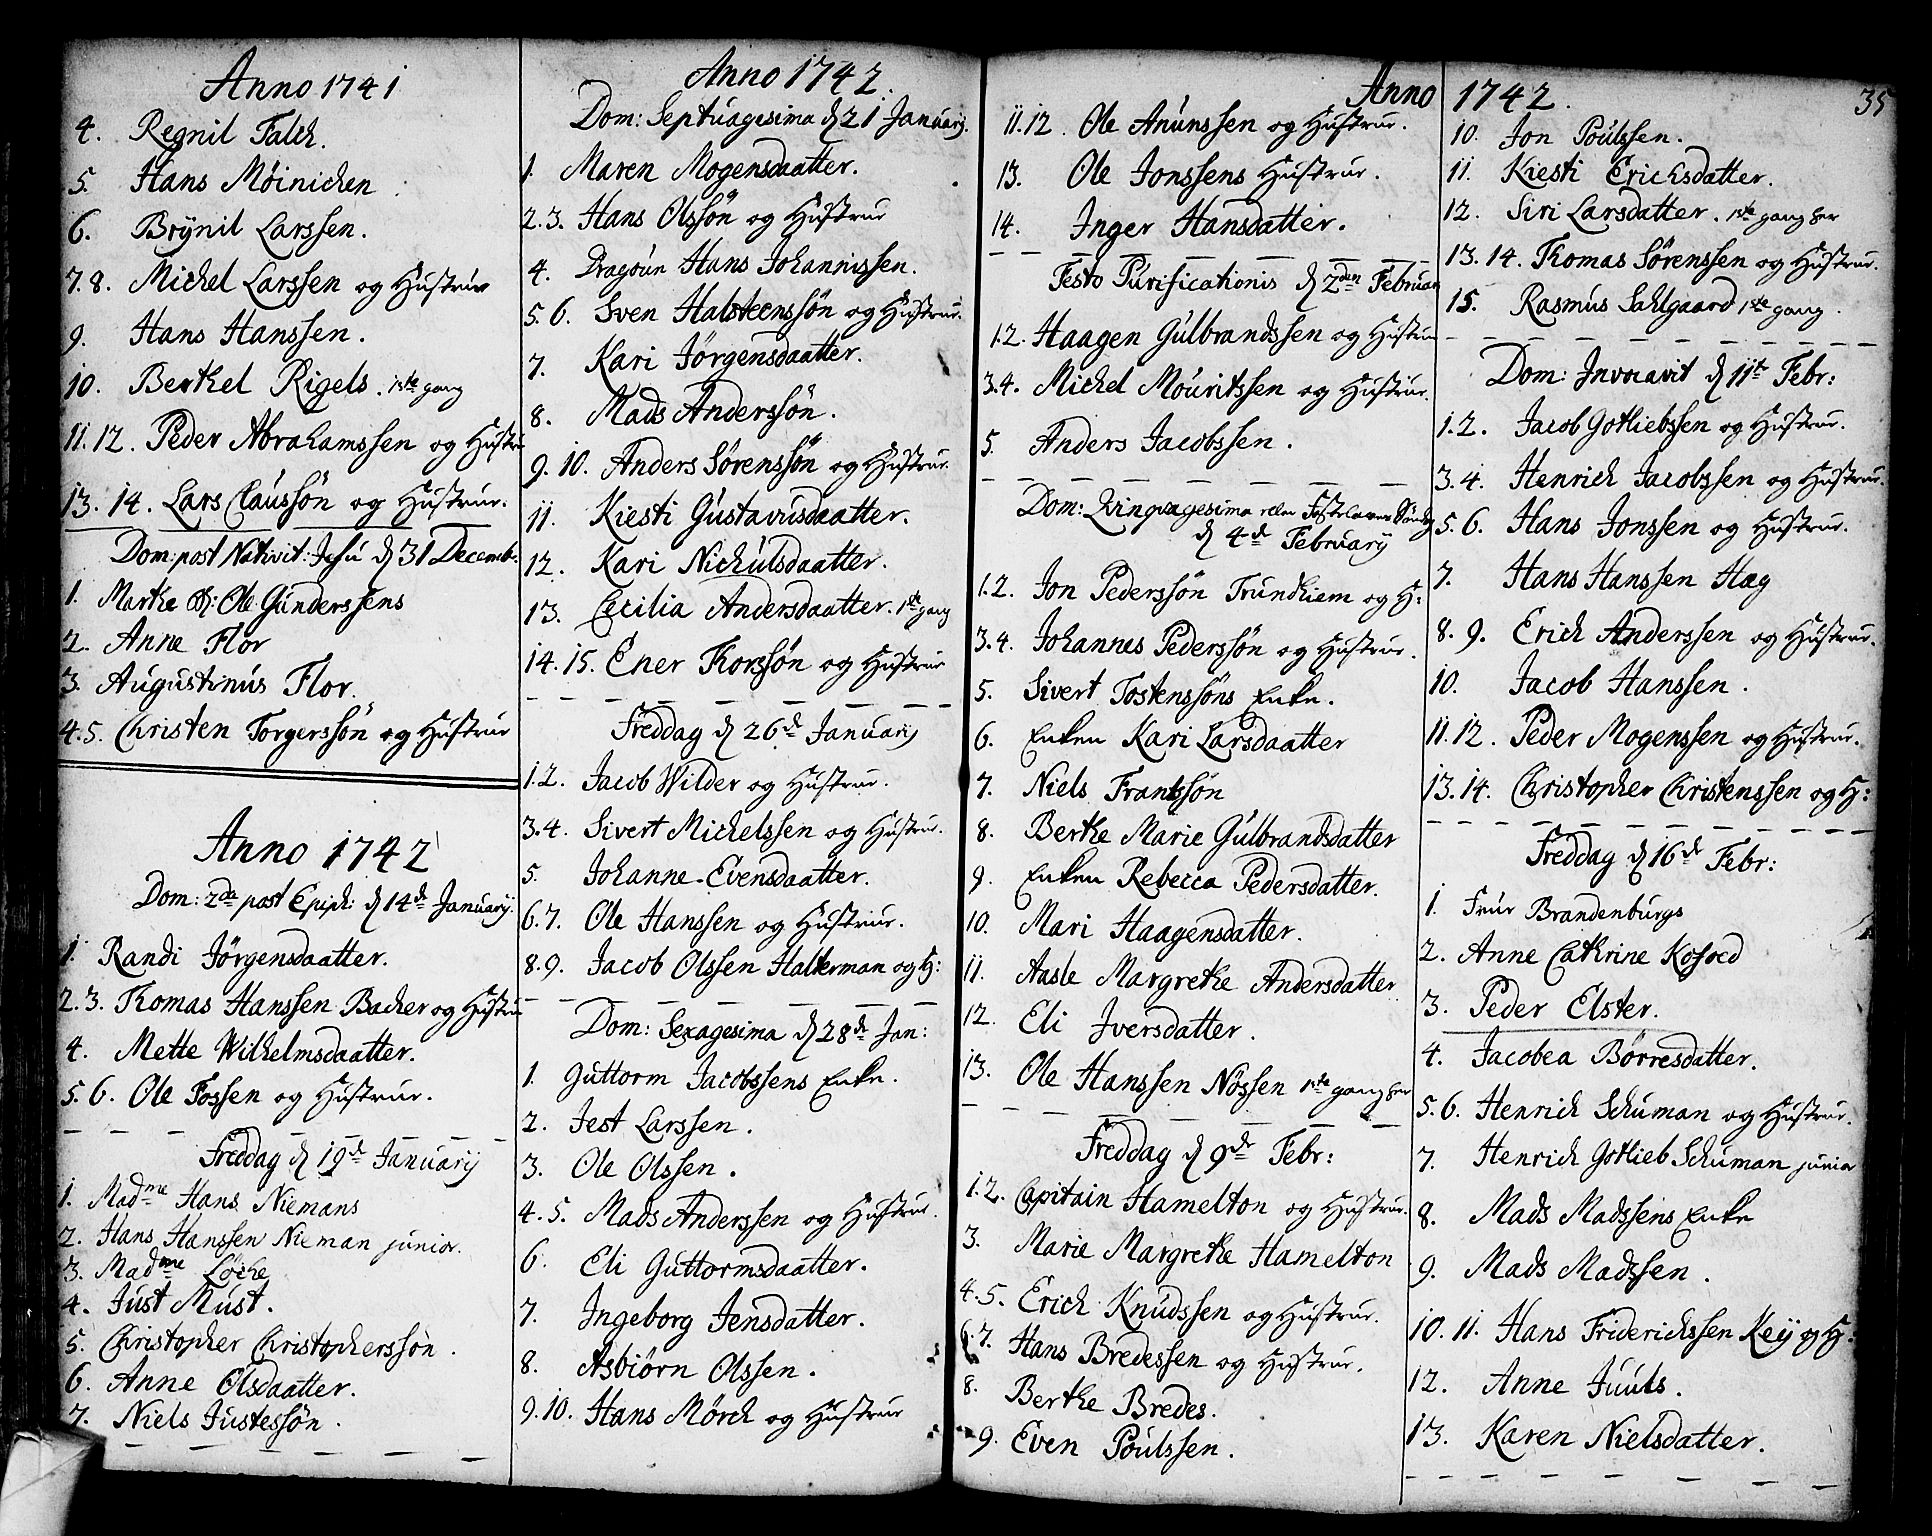 Anno 1741
4. Regnil Falch.
5. Hans Møinichen
6. Brÿnil Larssen.
7. 8. Michel Larssen og Hustrue
9. Hans Hanssen.
10. Berthel Rigels. 1ste gang
11. 12. Peder Abrahamssen og Hustru
13. 14. Lars Claussøn og Hustrur.
Dom: post Nativit: Jesu d 31 Decemb.
1. Marthe Ole Gunderssens
2. Anne Flor
3. Augustinus Flor.
4. 5. Christen Torgerssøn og Hustrur
Anno 1742
Dom: 2de post Epiph: d 14de Januarij.
1. Randi Jørgensdaatter.
2. 3. Thomas Hanssen Bacher og Hustru
4. Mette Wilhelmsdaatter.
5. 6. Ole Fossen og Hustrur.
Freddag d 19de Januarij
1. Madme Hans Niemans
2. Hans Hanssen Nieman junior.
3. Madme Løche
4. Just Must.
5. Christopher Christopherssøn.
6. Anne Olsdaatter.
7. Niels Justessøn.
Anno 1742.
Dom: Septuagesima d 21 Januarij.
1. Maren Mogensdaatter.
2. 3. Hans Olssøn og Hustrur
4. Dragoun Hans Johannissen.
5. 6. Sven Halsteenssøn og Hustrur.
7. Kari Jørgensdaatter.
8. Mads Anderssøn.
9. 10. Anders Sørenssøn og Hustrur.
11. Kiesti Gustavusdaatter.
12. Kari Nichulsdaatter.
13. Cecilia Andersdaatter. 1ste gang
14. 15. Ener Thorssøn og Hustrur
Freddag d 26de Januarij
1. 2. Jacob Wilder og Hustrur.
3. 4. Sivert Michelssen og Hustrur.
5. Johanne Evensdaatter.
6. 7. Ole Hanssen og Hustrur.
8. 9. Jacob Olssen Halterman og H:
Dom: Sexagesima d 28de Jan:
1. Guttorm Jacobssens Enke.
2. Jest Larssen.
3. Ole Olssen.
4. 5. Mads Anderssen og Hustrur.
6. Eli Guttormsdaatter.
7. Ingeborg Jensdatter.
8. Asbiørn Olssen.
9. 10. Hans Mørch og Hustrur
Anno 1742. 35
11. 12. Ole Anunssen og Hustrur.
13. Ole Jonssens Hustrur.
14. Inger Hansdatter.
Festo Purificationis d 2den Februar
1. 2. Haagen Gulbrandssen og Hustru
3. 4. Michel Mouritssen og Hustrur.
5. Anders Jacobssen.
Dom: Qvinqvagesima eller Fastelavens Søndag
d 4de Februarij
1. 2. Jon Pederssøn Trundhiem og H:
3. 4. Johannes Pederssøn og Hustrur.
5. Sivert Tostenssøns Enke.
6. Enken Kari Larsdaatter
7. Niels Frantssøn
8. Berthe Marie Gulbrandsdatter
9. Enken Rebecca Pedersdatter.
10. Mari Haagensdatter.
11. Aasle Margrethe Andersdatter
12. Eli Iversdatter.
13. Ole Hanssen Nøssen 1ste gang her
Freddag d 9de Febr:
1. 2. Capitain Hamelton og Hustrur.
3. Marie Margrethe Hamelton
4. 5. Erich Knudssen og Hustrur.
6. 7. Hans Bredessen og Hustrur.
8. Berthe Bredes.
9. Even Poulssen.
10. Jon Poulssen.
11. Kiesti Erichsdatter.
12. Siri Larsdatter. 1ste gang her
13. 14. Thomas Sørenssen og Hustrur.
15. Rasmus Sahlgaard 1ste gang.
Dom: Invocavit d 11te Febr:
1. 2. Jacob Gotliebssen og Hustrur.
3. 4. Henrich Jacobssen og Hustrur.
5. 6. Hans Jonssen og Hustrur.
7. Hans Hanssen Hæg
8. 9. Erich Anderssen og Hustrur.
10. Jacob Hanssen.
11. 12. Peder Mogenssen og Hustrur.
13. 14. Christopher Christenssen og H:
Freddag d 16de Febr:
1. Frur Brandenburgs
2. Anne Cathrine Kofoed
3. Peder Elster.
4. Jacobea Børresdatter.
5. 6. Henrich Schuman og Hustrur.
7. Henrich Gotlieb Schuman junior
8. Mads Madssens Enke
9. Mads Madssen.
10. 11. Hans Friderichssen Keÿ og H:
12. Anne Juuls.
13. Karen Nielsdatter.